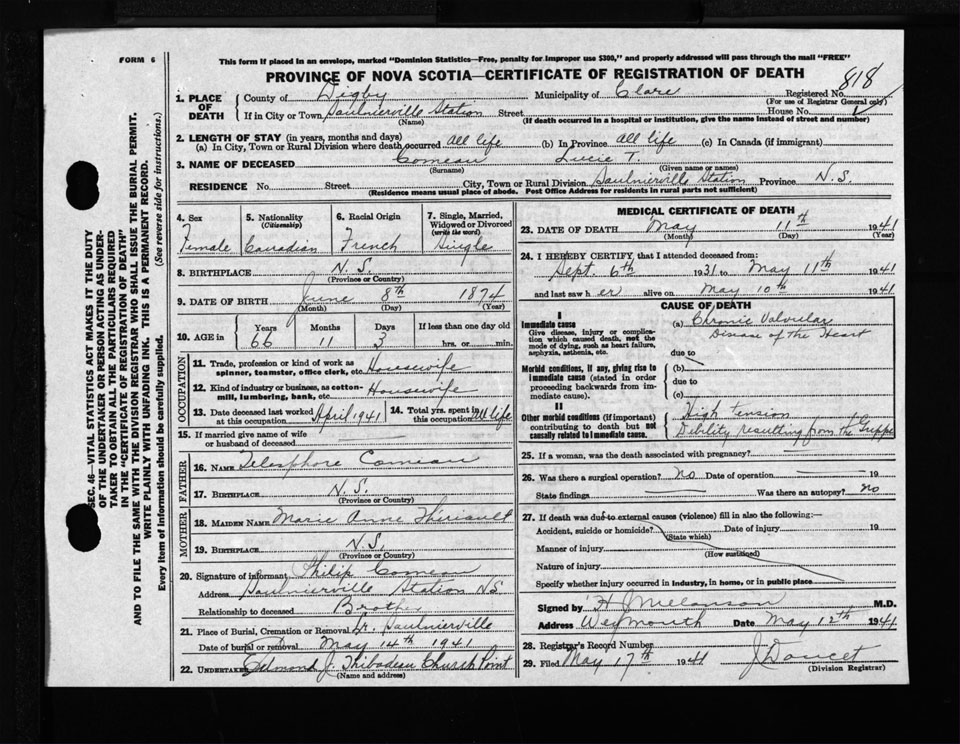 FORM 6
This form if placed in an envelope, marked "Dominion Statistics—Free, penalty for improper use $300," and properly addressed will pass through the mail "FREE"
PROVINCE OF NOVA SCOTIA—CERTIFICATE OF REGISTRATION OF DEATH
818
1. PLACE OF DEATH
County of Digby Municipality of Clare Registered No.
(For use of Registrar General only)
If in City or Town Saulnierville Station Street House No.
(Name) (If death occurred in a hospital or institution, give the name instead of street and number)
2. LENGTH OF STAY (in years, months and days)
(a) In City, Town or Rural Division where death occurred all life (b) In Province all life (c) In Canada (if immigrant)
3. NAME OF DECEASED Comeau Lucie T.
(Surname) (Given name or names)
RESIDENCE No. Street City, Town or Rural Division Saulnierville Station Province N.S.
(Residence means usual place of abode. Post Office Address for residents in rural parts not sufficient)
4. Sex Female
5. Nationality (Citizenship) Canadian
6. Racial Origin French
7. Single, Married, Widowed or Divorced (write the word) Single
8. BIRTHPLACE N.S.
(Province or Country)
9. DATE OF BIRTH June 8th 1874
(Month) (Day) (Year)
10. AGE in Years 66 Months 11 Days 3 If less than one day old hrs. or min.
OCCUPATION
11. Trade, profession or kind of work as spinner, teamster, office clerk, etc. Housewife
12. Kind of industry or business, as cotton-mill, lumbering, bank, etc. Housewife
13. Date deceased last worked at this occupation April 1941
14. Total yrs. spent in this occupation all life
15. If married give name of wife or husband of deceased
FATHER
16. NAME Telesphore Comeau
17. BIRTHPLACE N.S.
(Province or Country)
MOTHER
18. MAIDEN NAME Marie Anne Thériault
19. BIRTHPLACE N.S.
(Province or Country)
20. Signature of informant Philip Comeau
Address Saulnierville Station NS
Relationship to deceased Brother
21. Place of Burial, Cremation or Removal Lr. Saulnierville
Date of burial or removal May 14th 1941
22. UNDERTAKER Edmond J. Thibodeau Church Point
(Name and address)
MEDICAL CERTIFICATE OF DEATH
23. DATE OF DEATH May 11th 1941
(Month) (Day) (Year)
24. I HEREBY CERTIFY, that I attended deceased from:
Sept. 6th 1931 to May 11th 1941
and last saw her alive on May 10th 1941
CAUSE OF DEATH
I
Immediate cause
Give disease, injury or complication which caused death, not the mode of dying, such as heart failure, asphyxia, asthenia, etc.
(a) Chronic Valvular
Disease of the Heart
due to
Morbid conditions, if any, giving rise to immediate cause (stated in order proceeding backwards from immediate cause).
(b)
due to
(c)
II
Other morbid conditions (if important) contributing to death but not causally related to immediate cause.
High tension
Debility resulting from the Grippe
25. If a woman, was the death associated with pregnancy? no
26. Was there a surgical operation? no Date of operation 19
State findings Was there an autopsy? no
27. If death was due to external causes (violence) fill in also the following:—
Accident, suicide or homicide? Date of injury 19
(State which)
Manner of injury
(How sustained)
Nature of injury
Specify whether injury occurred in industry, in home, or in public place
Signed by H J Melanson M.D.
Address Weymouth Date May 12th 1941
28. Registrar's Record Number
29. Filed May 17th 1941 J Doucet
(Division Registrar)
SEC. 46—VITAL STATISTICS ACT MAKES IT THE DUTY
OF THE UNDERTAKER OR PERSON ACTING AS UNDER-
TAKER TO OBTAIN ALL THE PARTICULARS REQUIRED
IN THE "CERTIFICATE OF REGISTRATION OF DEATH"
AND TO FILE THE SAME WITH THE DIVISION REGISTRAR WHO SHALL ISSUE THE BURIAL PERMIT.
WRITE PLAINLY WITH UNFADING INK. THIS IS A PERMANENT RECORD.
Every item of information should be carefully supplied. (See reverse side for instructions.)